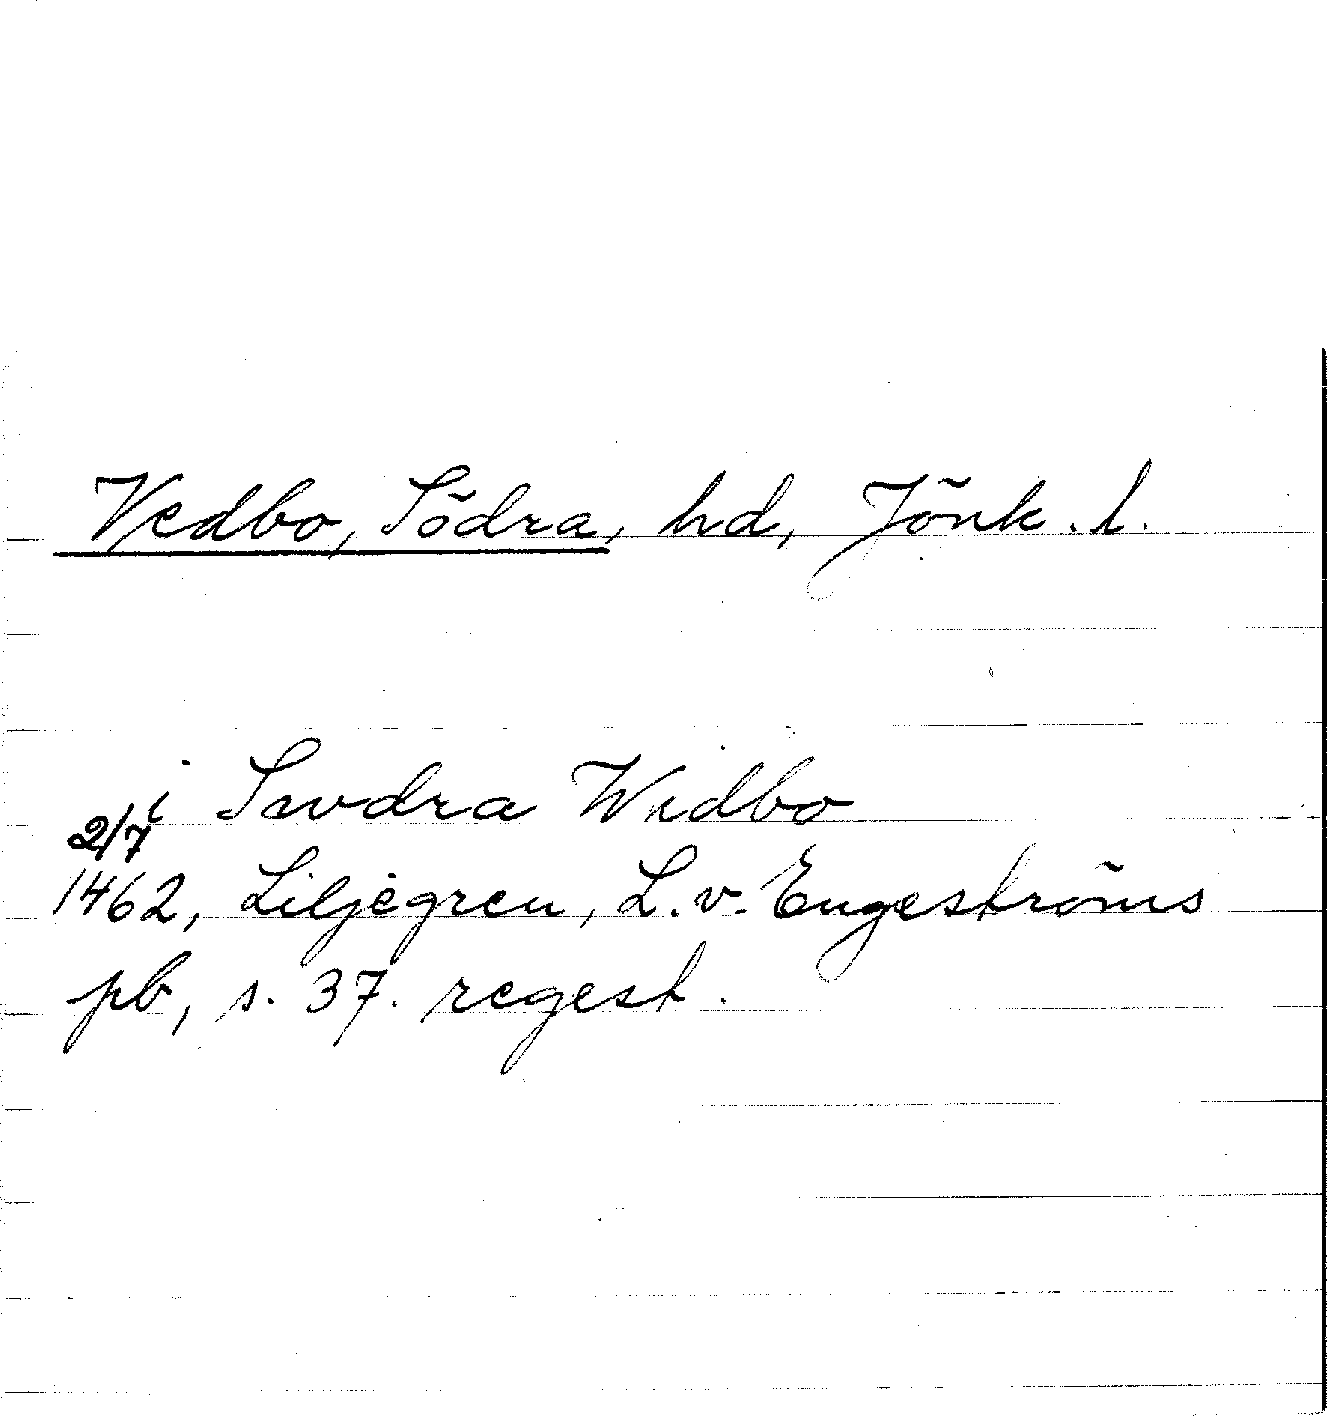 Vedbo, Södra, hd, Jönk. l.
i Swdra Widbo
2/7
1462, Liljegren, L. v. Engeströms
pb, s. 37. regest.